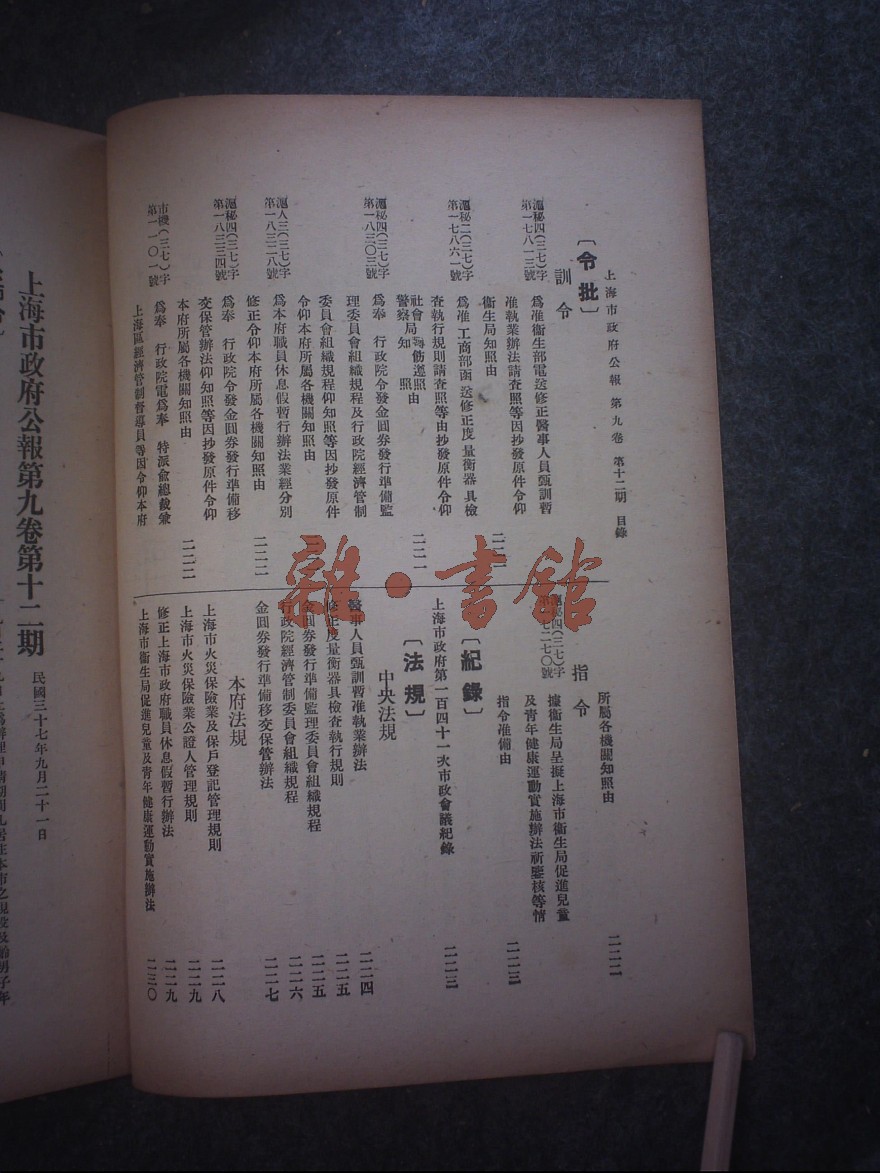 上海市政府公報 第九卷 第十二期 目錄
〔令批〕
訓令
滬秘四(三七)字
第一七八一三號
為准衞生部電送修正醫事人員甄訓暫
准執業辦法請查照等因抄發原件令仰
衞生局知照由
滬秘二(三七)字
第一七八六一號
為准工商部函送修正度量衡器具檢
查執行規則請查照等由抄發原件令仰
社會局轉飭遵照
警察局知 照由
滬秘四(三七)字
第一八三〇三號
為奉 行政院令發金圓券發行準備監
理委員會組織規程及行政院經濟管制
委員會組織規程仰知照等因抄發原件
令仰本府所屬各機關知照由
滬人三(三七)字
第一八三二八號
為本府職員休息假暫行辦法業經分別
修正令仰本府所屬各機關知照由
二二二
滬秘四(三七)字
第一八三三四號
為奉 行政院令發金圓券發行準備移
交保管辦法仰知照等因抄發原件令仰
本府所屬各機關知照由
二二二
市機(三七)字
第一一〇一號
為奉 行政院電為奉 特派俞總裁兼
上海區經濟管制督導員等因令仰本府
所屬各機關知照由
二二二
指令
滬秘四(三七)字
據衞生局呈擬上海市衞生局促進兒童
及青年健康運動實施辦法祈鑒核等情
指令准備由
二二三
〔紀錄〕
上海市政府第一百四十一次市政會議紀錄
二二三
〔法規〕
中央法規
醫事人員甄訓暫准執業辦法
二二四
修正度量衡器具檢查執行規則
二二五
金圓券發行準備監理委員會組織規程
二二五
行政院經濟管制委員會組織規程
二二六
金圓券發行準備移交保管辦法
二二七
本府法規
上海市火災保險業及保戶登記管理規則
二二八
上海市火災保險業公證人管理規則
二二九
修正上海市政府職員休息假暫行辦法
二二九
上海市衞生局促進兒童及青年健康運動實施辦法
二三〇
上海市政府公報第九卷第十二期
民國三十七年九月二十一日
雜·書館